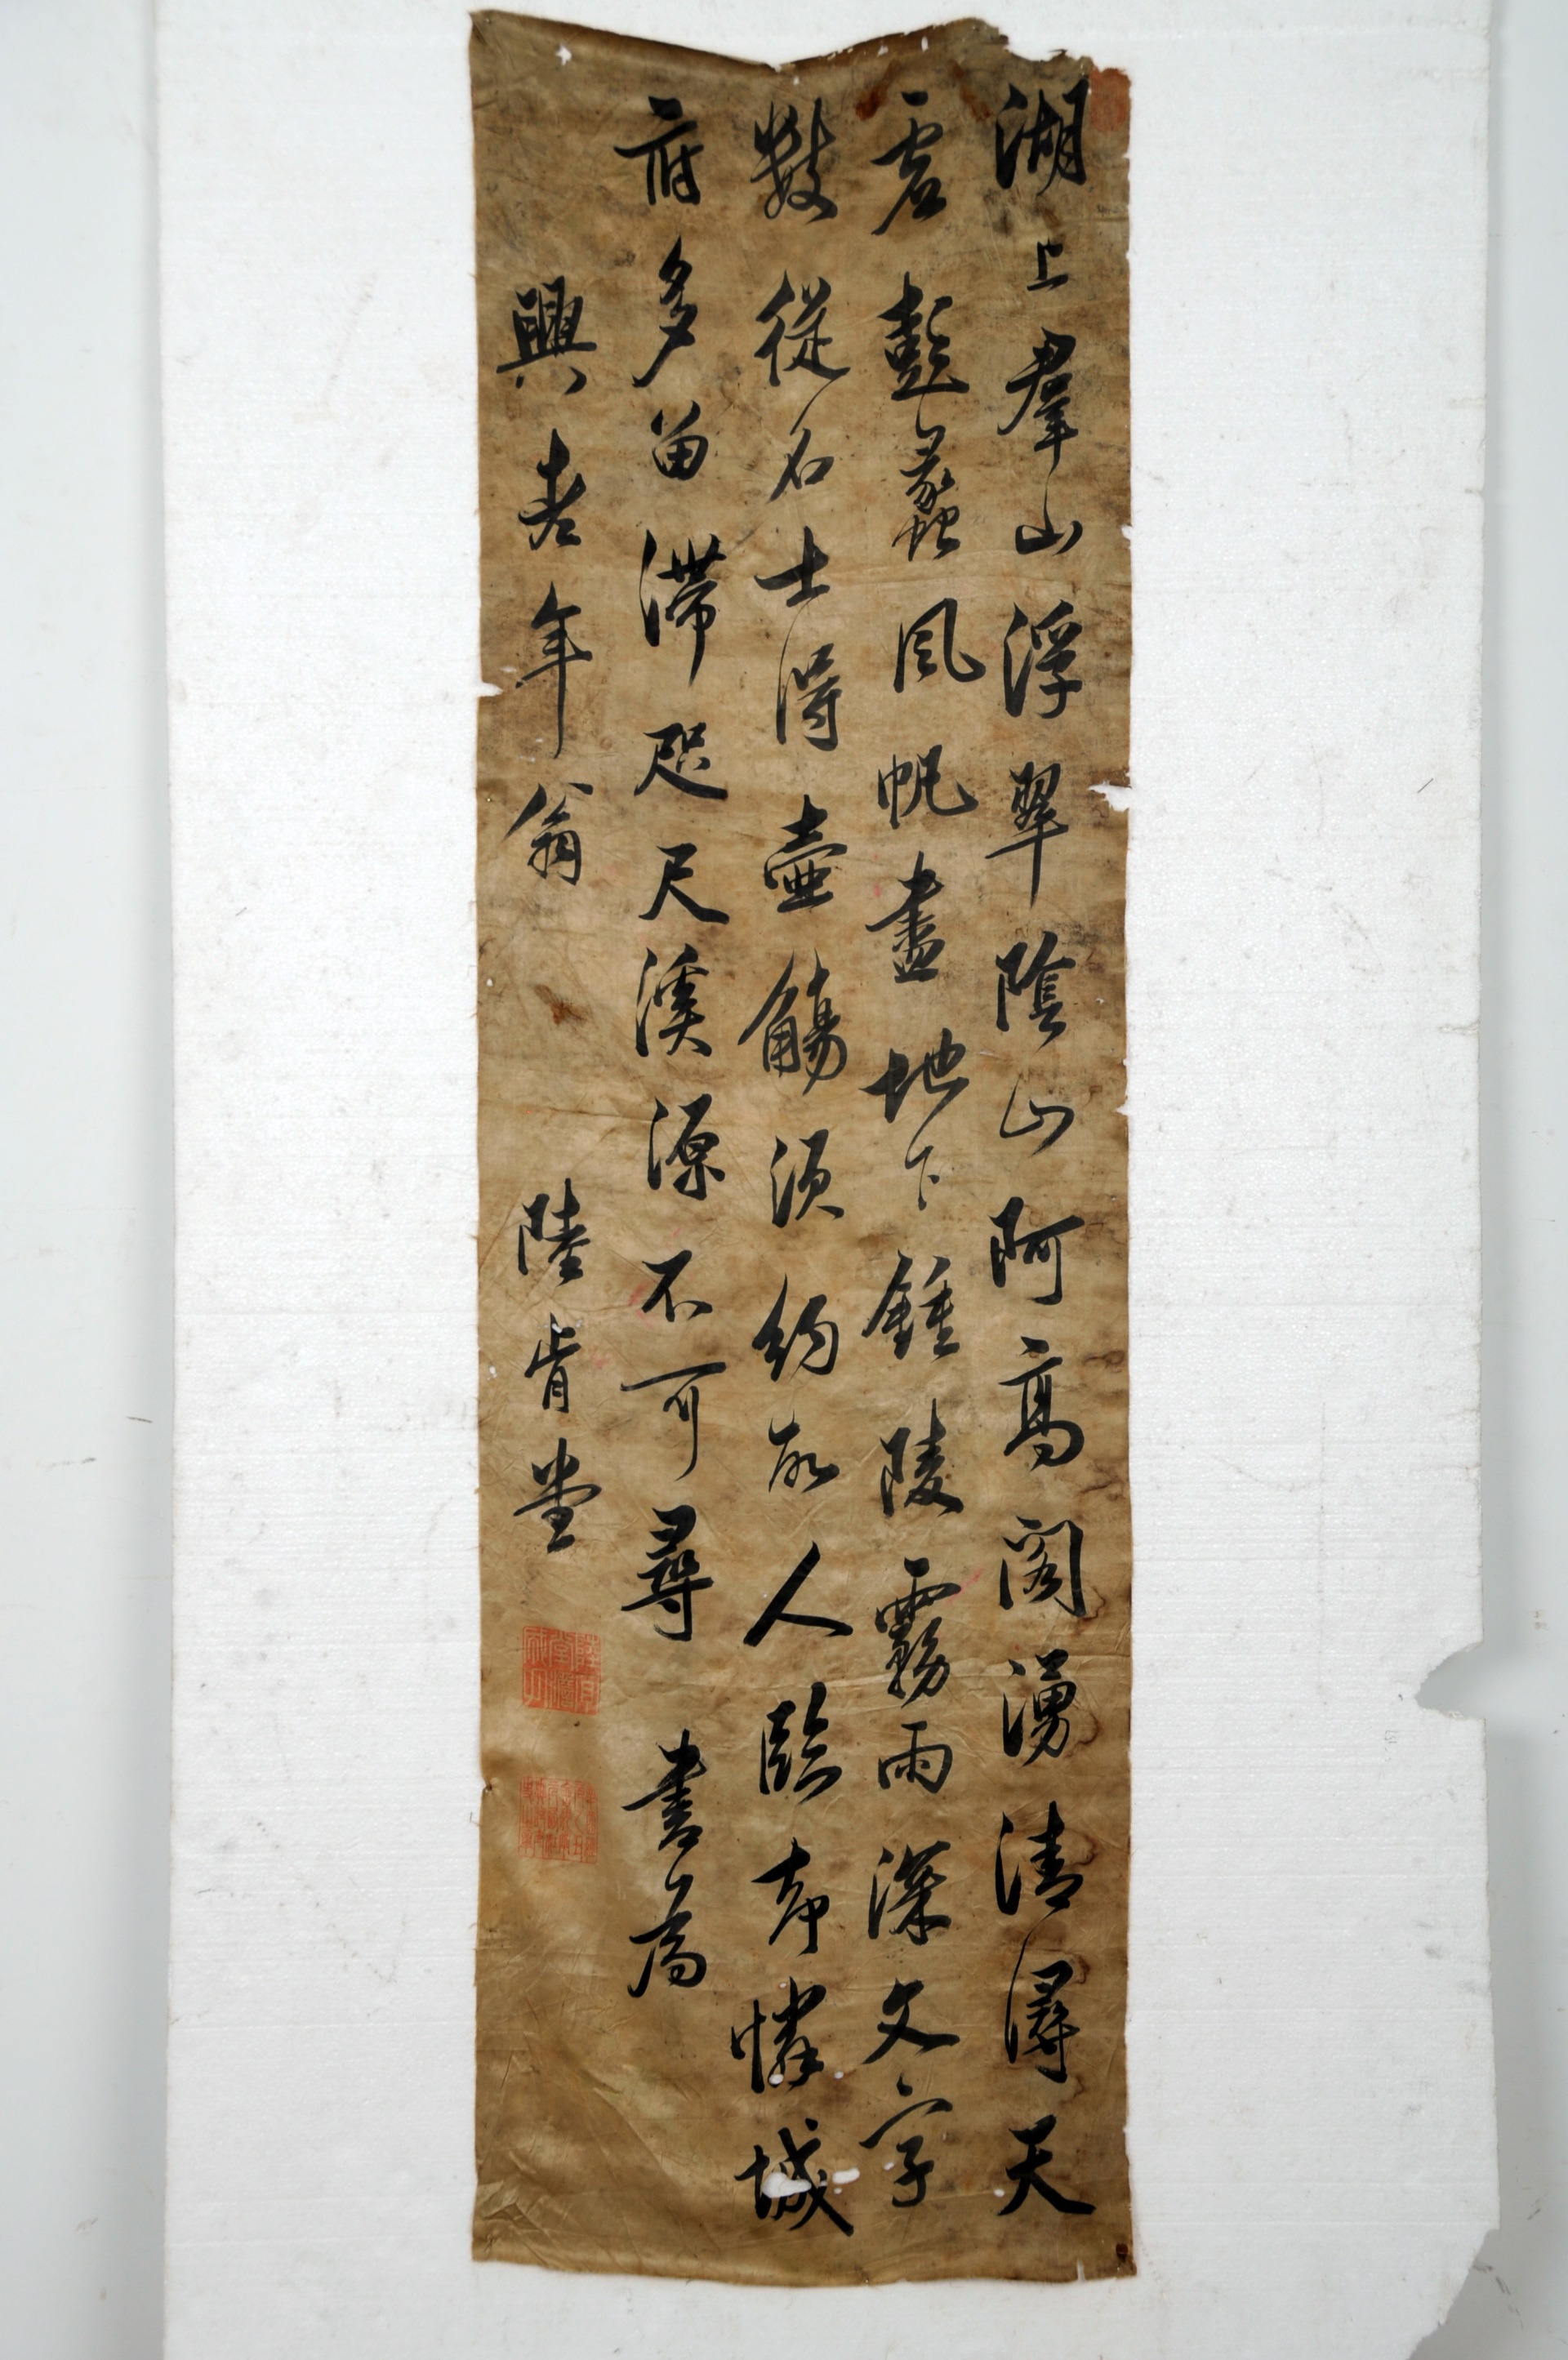 湖上羣山浮翠陰山阿高閣湧清潯天
虛彭蠡風帆盡地下鍾陵霧雨深文字
數從名士得壺觴須約故人臨却憐城
府多留滯咫尺溪源不可尋 書為
興老年翁 陸肯堂